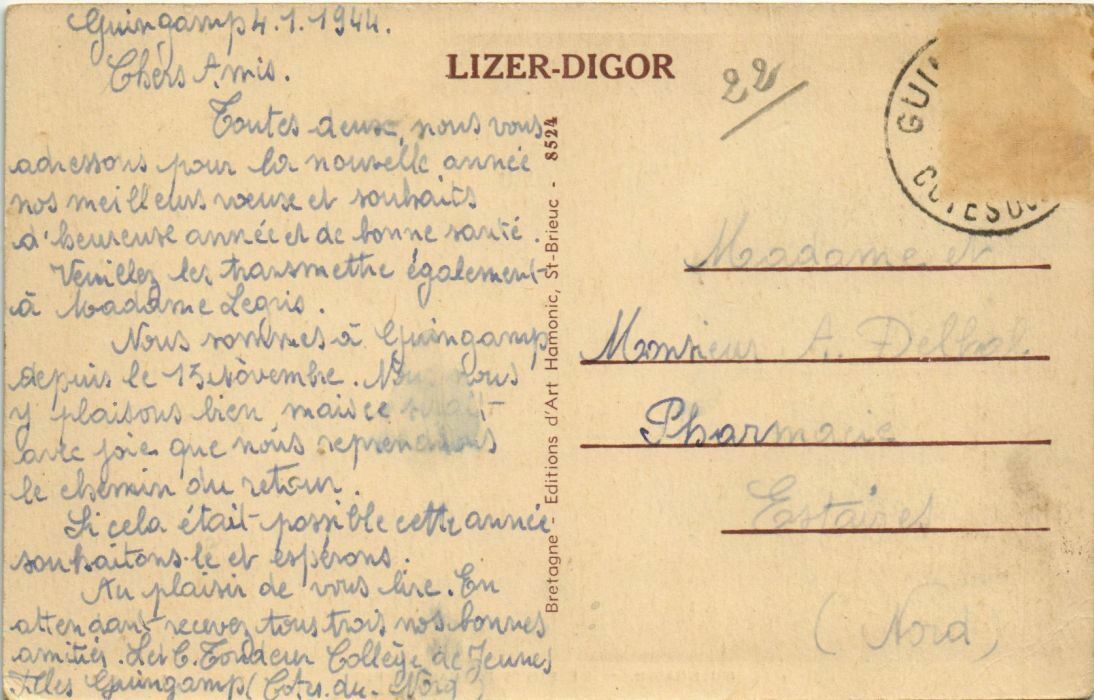 Guingamp 4.1.1944.
Chers Amis.
Toutes deux, nous vous
adressons pour la nouvelle année
nos meilleurs voeux et souhaits
d'heureuse année et de bonne santé.
Veuillez les transmettre également
à Madame Legris.
Nous sommes à Guingamp
depuis le 15 Novembre. Nous nous
y plaisons bien mais ce serait
avec joie que nous reprendrions
le chemin du retour.
Si cela était possible cette année
souhaitons-le et espérons.
Au plaisir de vous lire. En
attendant recevez tous trois nos bonnes
amitiés. L et C. Tondeur Collège de Jeunes
Filles Guingamp (Côtes-du-Nord)
LIZER-DIGOR
Bretagne - Editions d'Art Hamonic, St-Brieuc - 8524
22/
GUI
COTES DU
Madame et
Monsieur A.
Pharmacie
Estaires
(Nord)